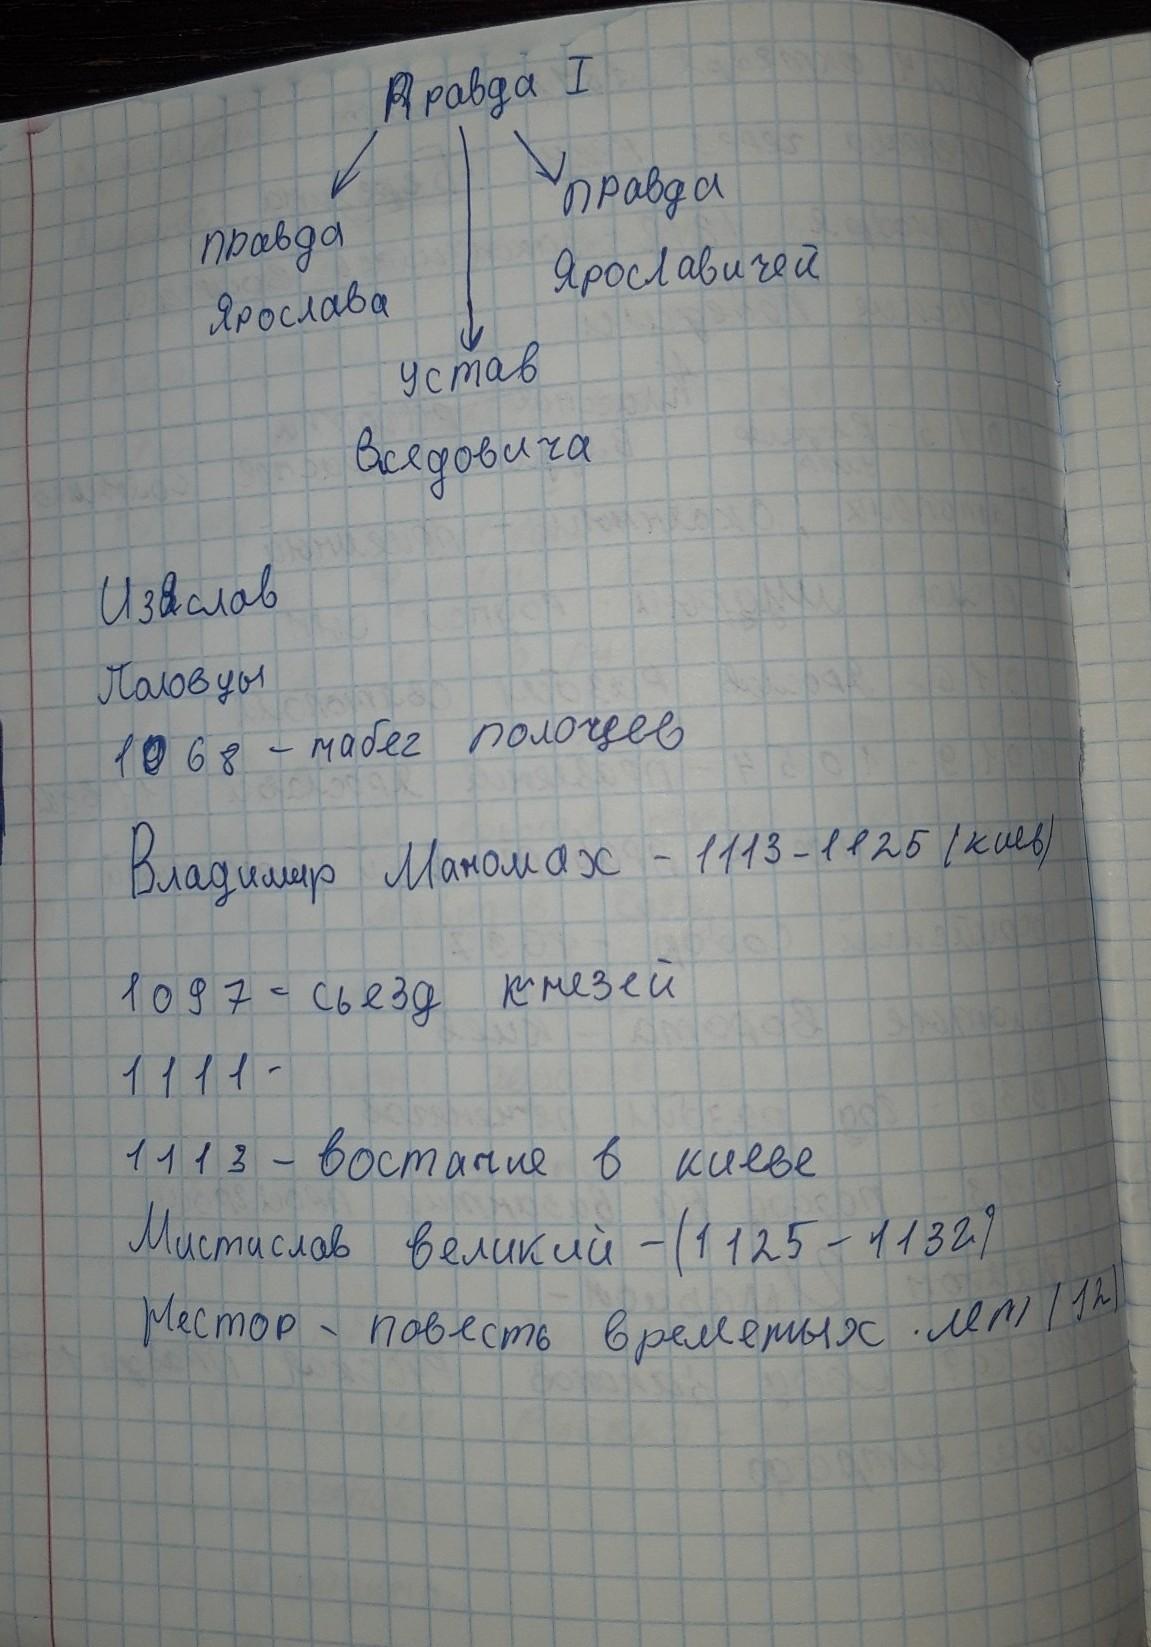 Правда I
правда
Ярослава
правда
Ярославичей
устав
Вседовича
Изяслав
Половцы
1068 - набег полочцев
Владимир Маномах - 1113-1125 (киев)
1097 - сьезд кнезей
1111-
1113 - востание в киеве
Мистислав великий - (1125 - 1132)
Нестор - повесть временых лет (12)